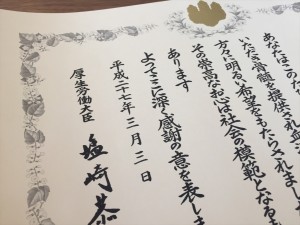 あなたはこのた
いただき骨髄を提供されま
方々に明るい希望をもたらされまし
その崇高なお心は社会の模範となるも
あります
よってここに深く感謝の意を表しま
平成二十七年三月三日
厚生労働大臣
塩崎恭